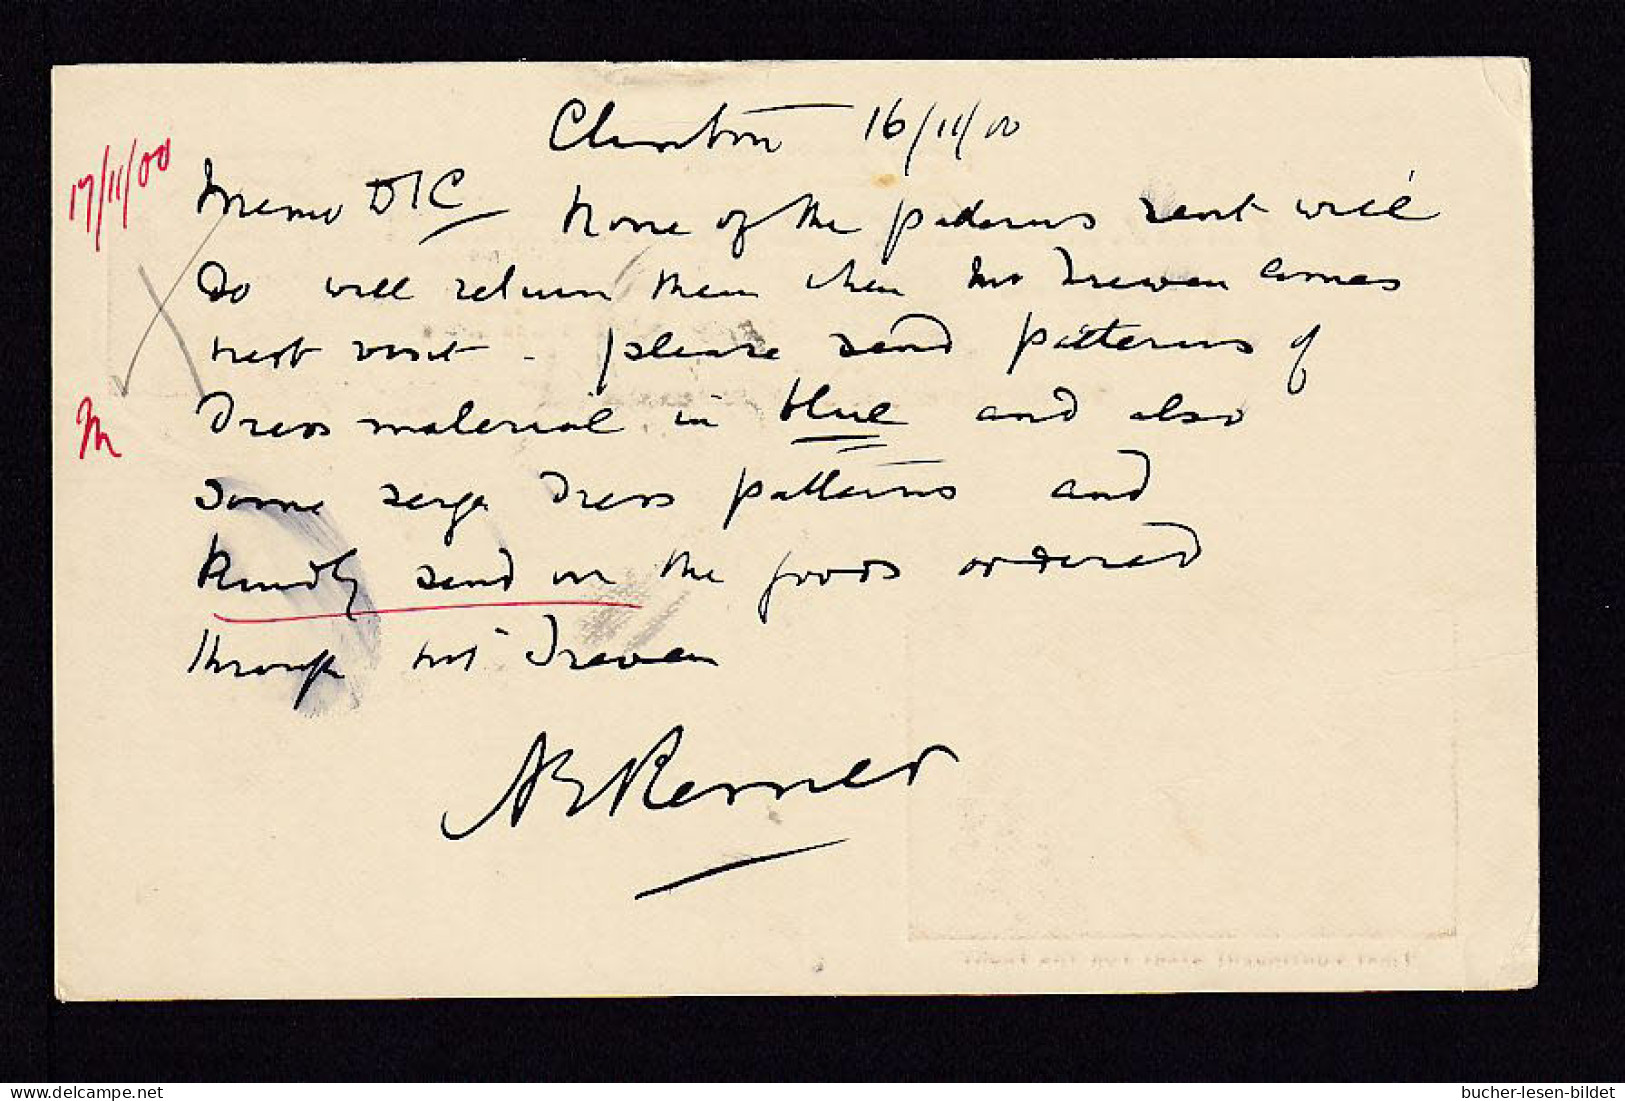 16/11/00
17/11/00
Memo DIC None of the patterns sent will
do will return them when Mr Trewen comes
next visit - please send patterns of
Dress material in blue and also
some serge Dress patterns and
Kindly send on the goods ordered
through Mr Trewen
delcampe.net
bucher-lesen-bildet